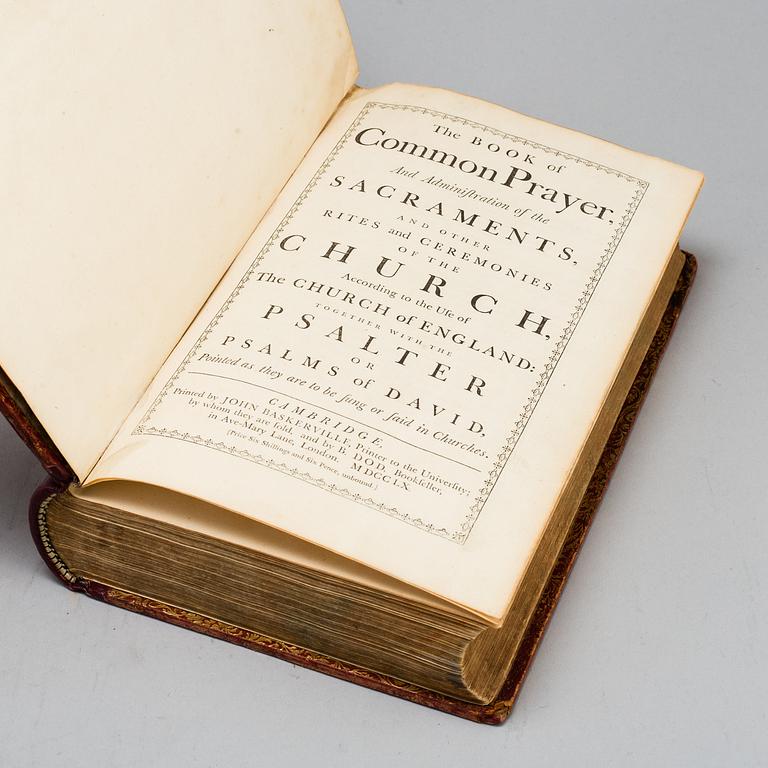 The BOOK of
Common Prayer,
And Adminiſtration of the
SACRAMENTS,
AND OTHER
RITES and CEREMONIES
OF THE
CHURCH,
According to the Uſe of
The CHURCH of ENGLAND:
TOGETHER WITH THE
PSALTER
OR
PSALMS of DAVID,
Pointed as they are to be ſung or ſaid in Churches.
CAMBRIDGE,
Printed by JOHN BASKERVILLE, Printer to the Univerſity;
by whom they are ſold, and by B. DOD, Bookſeller,
in Ave-Mary Lane, London. MDCCLX.
(Price Six Shillings and Six Pence, unbound.)